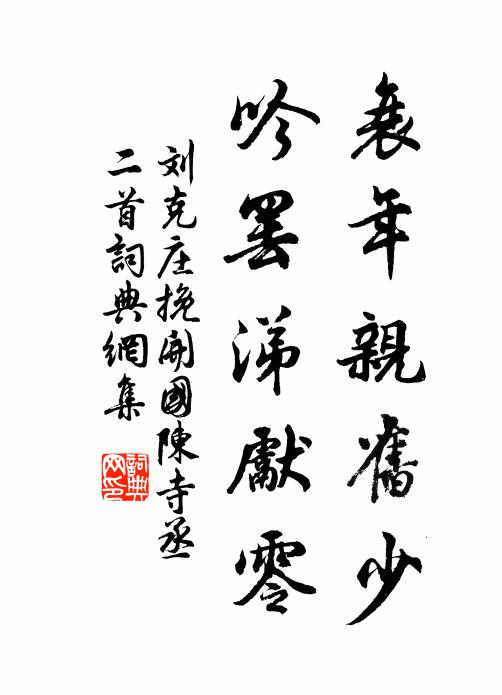 衰年親舊少
吟罢涕獻零
刘克庄挽開國陳寺丞
二首詞典網集
詞典
网印